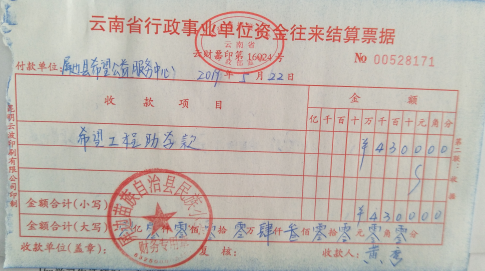 云南省行政事业单位资金往来结算票据
云财易印第16024号
No 00528171
付款单位:屏边县希望公益服务中心 2019年5月22日
收款项目 金额
亿千百十万千百十元角分
希望工程助学款 ¥430000
金额合计(小写) ¥430000
金额合计(大写) 零亿零仟零佰零拾零万肆仟叁佰零拾零元零角零分
收款单位(盖章): 复核: 收款人:
第二联:收据
昆明云波印刷有限公司印制
苗族自治县民族小
财务专用章